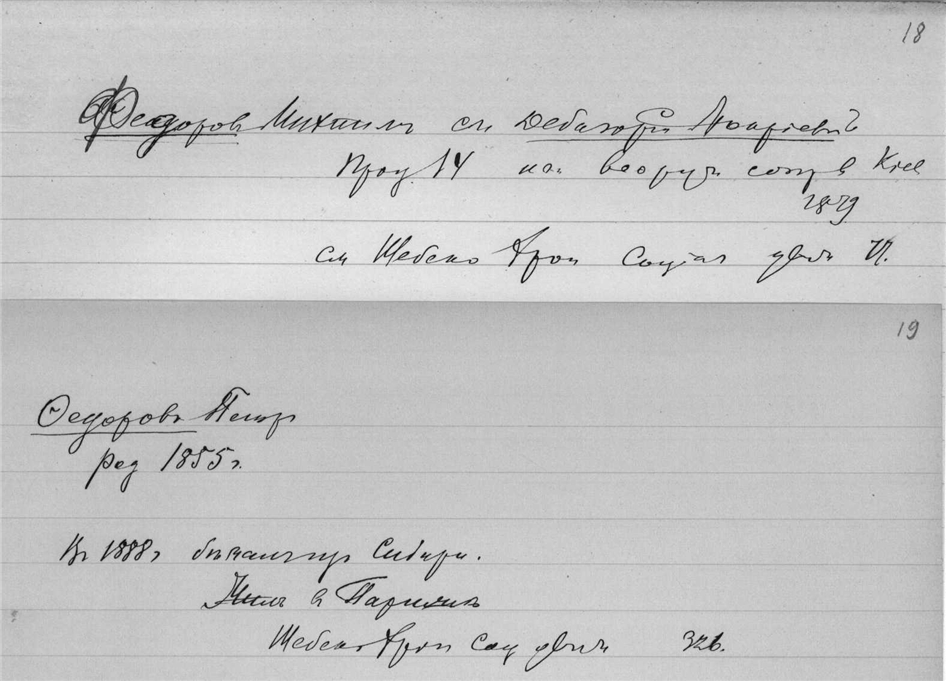 18
Феодоровъ Михаилъ см Дебагорій Мокріевичъ
Проц. 14 воору сопр в Kiev
1879
см Шебеко Хрон Соціал движ
19
Ѳедоровъ Петръ
род 1855 г.
Въ 1888 г бѣжалъ Сибири.
Жилъ в Парижѣ
Шебеко Хрон Соц движ 326.